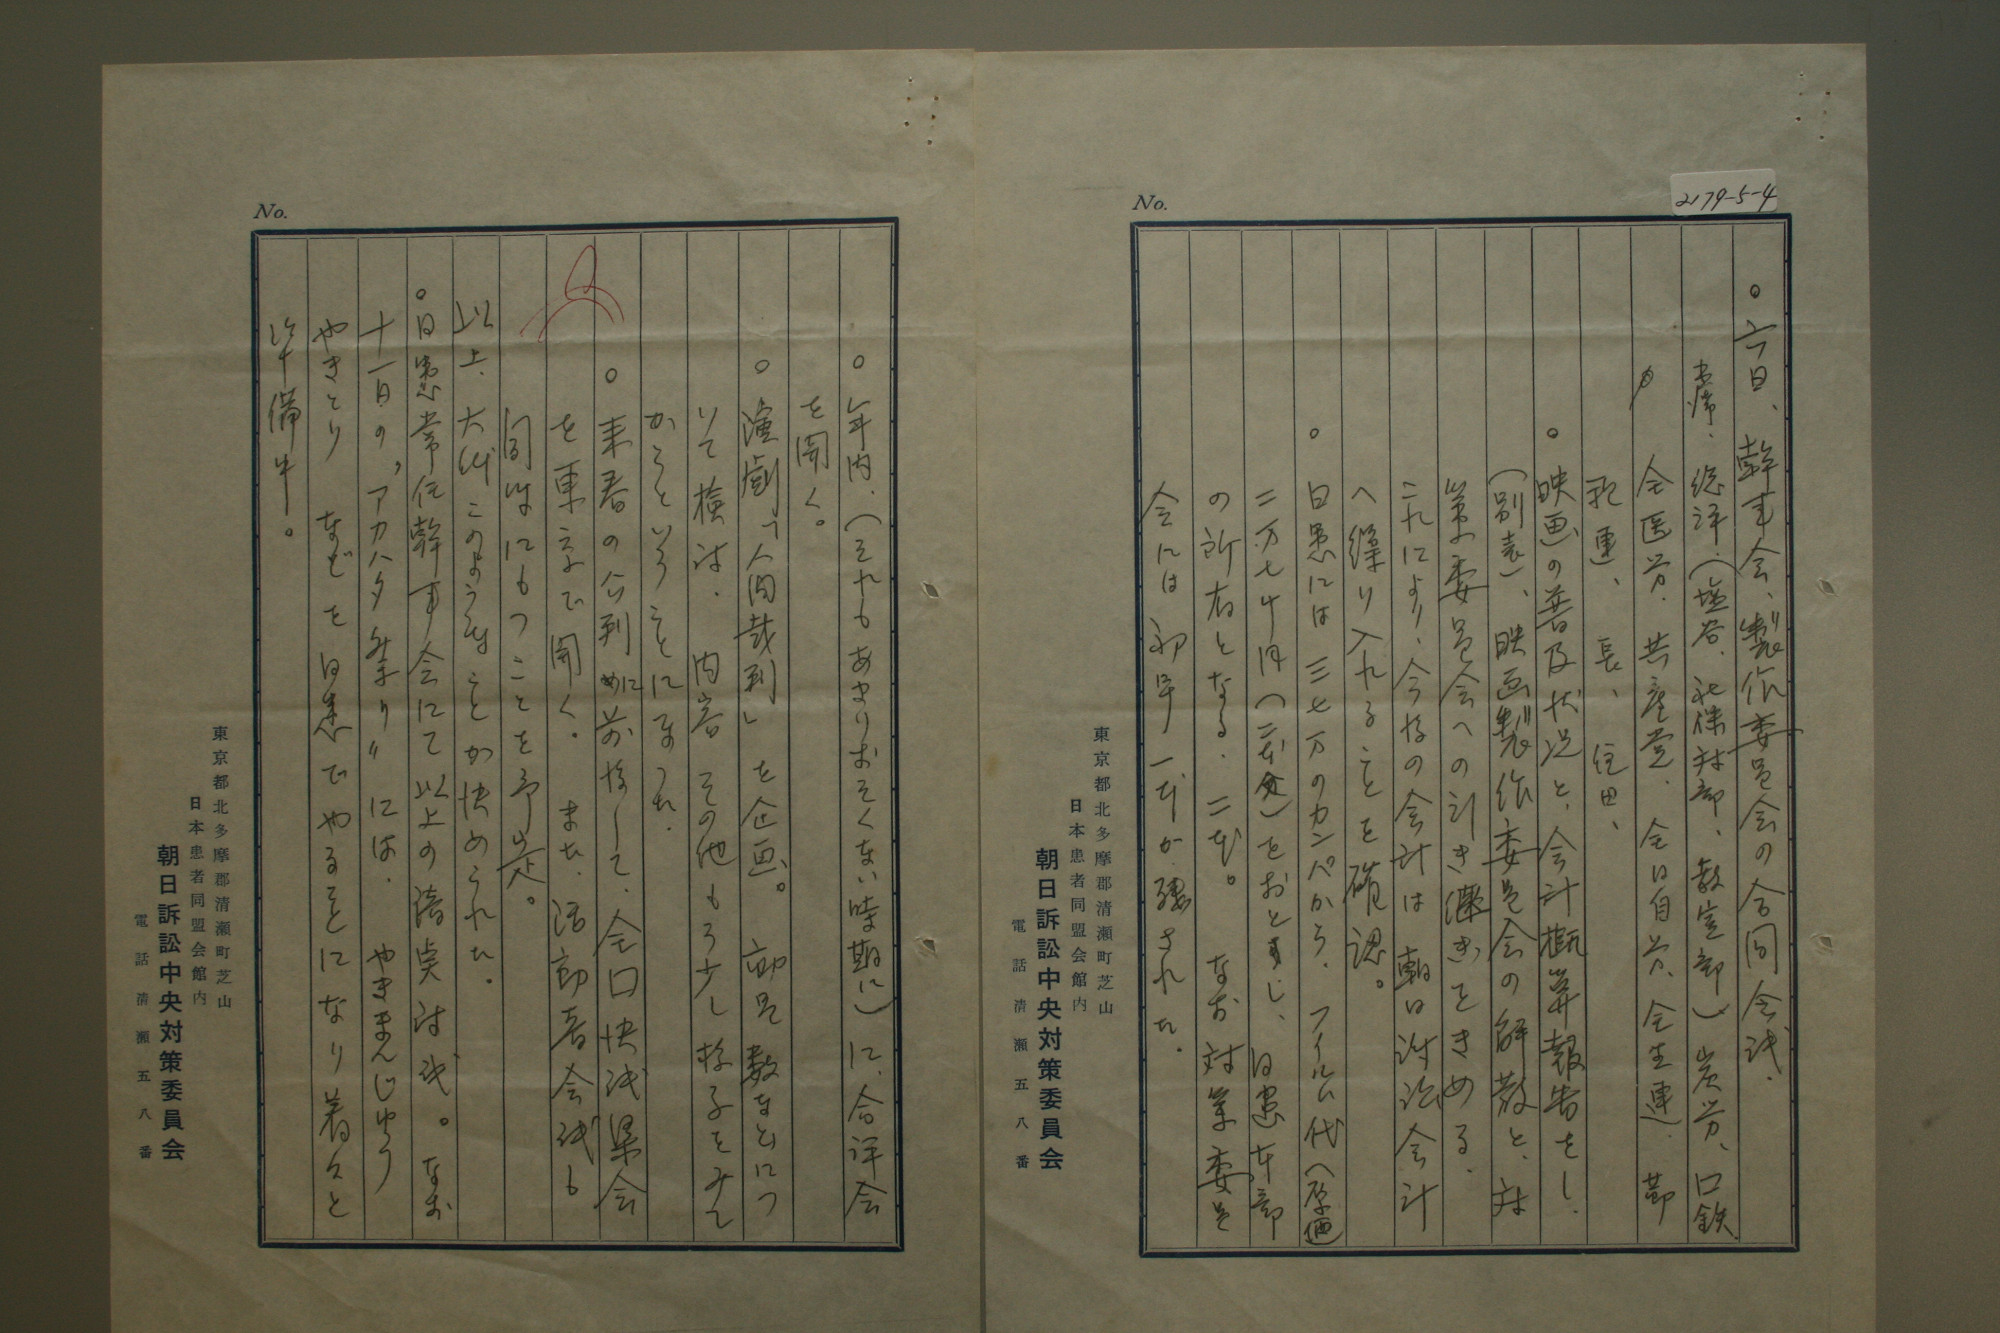 2179-5-4
No.
○六日、幹事会、製作委員会の合同会議.
出席、総評.(塩谷、社保対部、教宣部)炭労、国鉄
〃 全医労、共産党、全日自労、全生連、
長、
○映画の普及状況と、会計概算報告をし、
(別表)、映画製作委員会の解散と、対
策委員会への引き継ぎをきめる.
これにより、今後の会計は朝日訴訟会計
へ繰り入れることを確認。
○日患には三七万のカンパから、フイルム代(原価)
二万七千円(二本分)をおとし、日患本部
の所有となる.二本。なお対策委員
会には初号一本が残された.
東京都北多摩郡清瀬町芝山
日本患者同盟会館内
朝日訴訟中央対策委員会
電話清瀬五八番
No.
○年内.(それもあまりおそくない時期に)に、合評会
を開く。
○演劇「人間裁判」を企画。動員数などにつ
いて検討.内容その他もう少し様子をみて
からということになった.
○来春の公判めに前後して、全国決議集会
を東京で開く。また、活動者会議も
同時にもつことを予定。
以上、大体このようなことが決められた.
○日患常任幹事会にて以上の諸点討議。なお
十一日の〝アカハタ祭り〟には.やきまんじゅう
やきとりなどを日患でやることになり着々と
準備中。
東京都北多摩郡清瀬町芝山
日本患者同盟会館内
朝日訴訟中央対策委員会
電話清瀬五八番